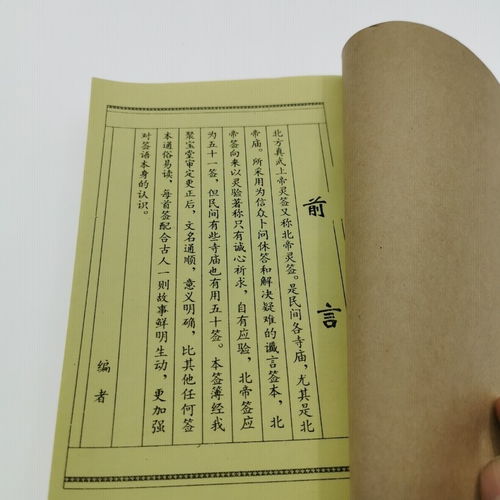 前言
北方真武上帝灵签又称北帝灵签。是民间各寺庙，尤其是北
帝庙。所采用为信众卜问休答和解决疑难的谶言签本，北
帝签向来以灵验著称只有诚心祈求，自有应验，北帝签应
为五十一签，但民间有些寺庙也有用五十签。本签簿经我
聚宝堂审定更正后，文名通顺，意义明确，比其他任何签
本通俗易读，每首签配合古人一则故事鲜明生动，更加强
对签语本身的认识。
编者